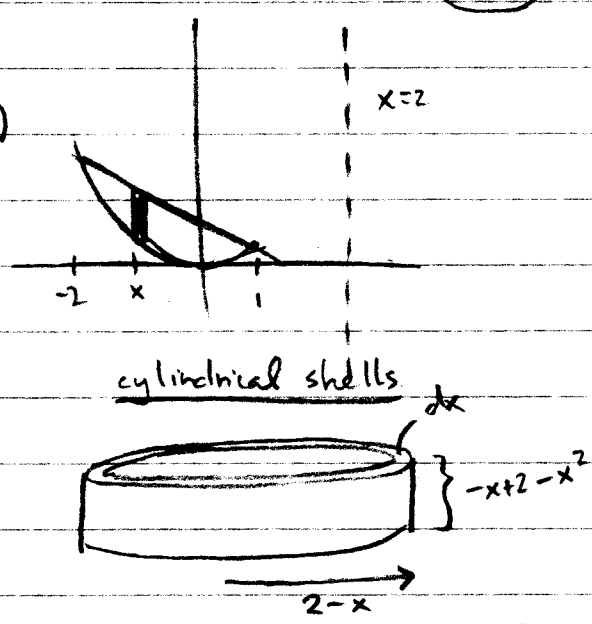 )
x=2
-2 x 1
cylindrical shells
dx
-x+2-x²
2-x